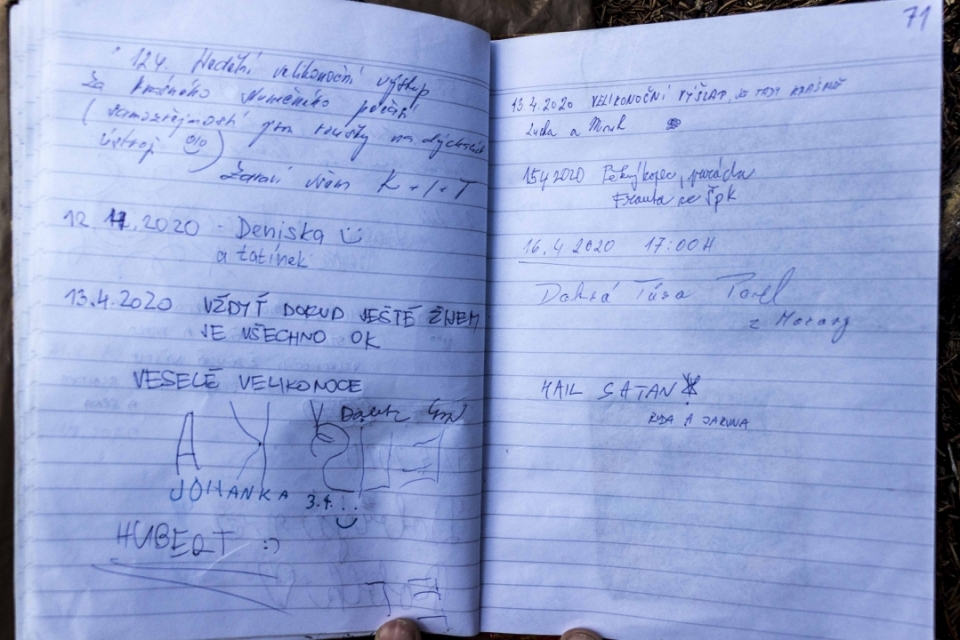 12.4. Nedělní velikonoční výstup
za krásného slunečního počasí
(samozřejmostí jsou roušky na dýchací
ústrojí)
Zdraví všem K+I+T
12.4.2020 - Deniska
a tatínek
13.4.2020 VŽDYŤ DOKUD JEŠTĚ ŽIJEM
JE VŠECHNO OK
VESELÉ VELIKONOCE
JOHANKA
HUBERT :)
71
13.4.2020 VELIKONOČNÍ VÝŠLAP, JE TADY KRÁSNĚ
a
15.4.2020 Pěkný kopec, paráda
Franta ze Špk
16.4.2020 17:00H
Dobrá Túra Pavel
z Moravy
HAIL SATAN
A